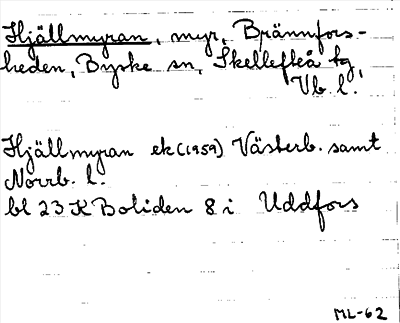 Hjällmyran, myr, Brännfors-
heden, Byske sn, Skellefteå tg,
Vb. l.
Hjällmyran ek (1959) Västerb. samt
Norrb. l.
bl 23 K Boliden 8 i Uddfors
ML-62